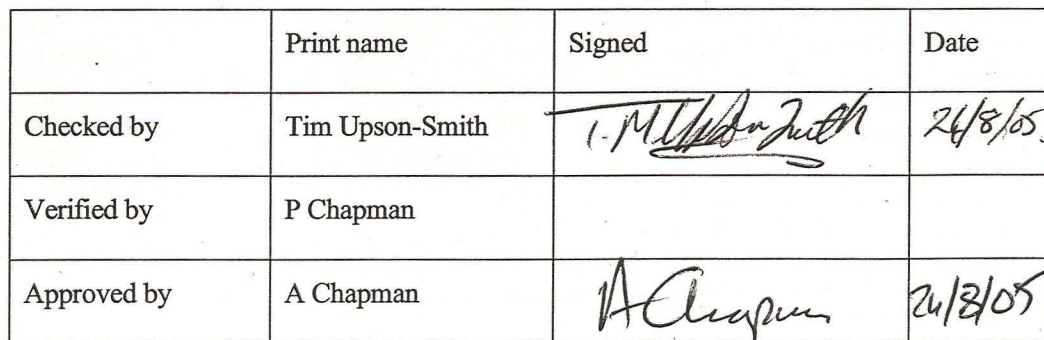 Print name Signed Date
Checked by Tim Upson-Smith T. M Upson Smith 24/8/05
Verified by P Chapman
Approved by A Chapman A Chapman 24/8/05